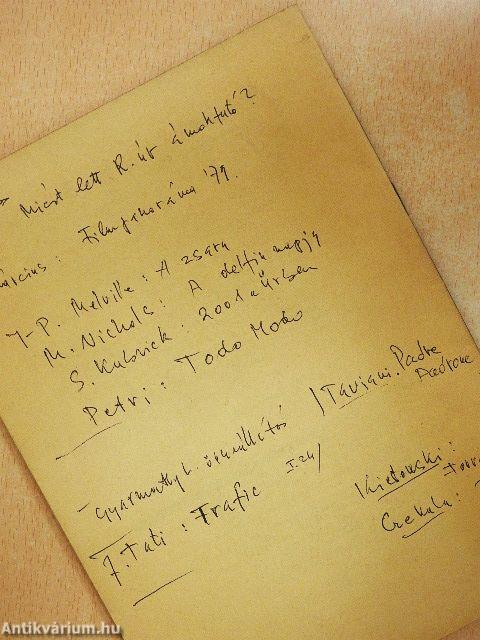 Miért lett R. úr ámokfutó?
március: Filmpanoráma '79.
J-P. Melville: A zsaru
M. Nichols: A delfin napja
S. Kubrick: 2001 űrben
Petri: Todo Modo
- Gyarmathy L. /Taviani: Padre Padrone
J. Tati: Trafic I.24/
Kieslowski:
Czekala:
Antikvárium.hu